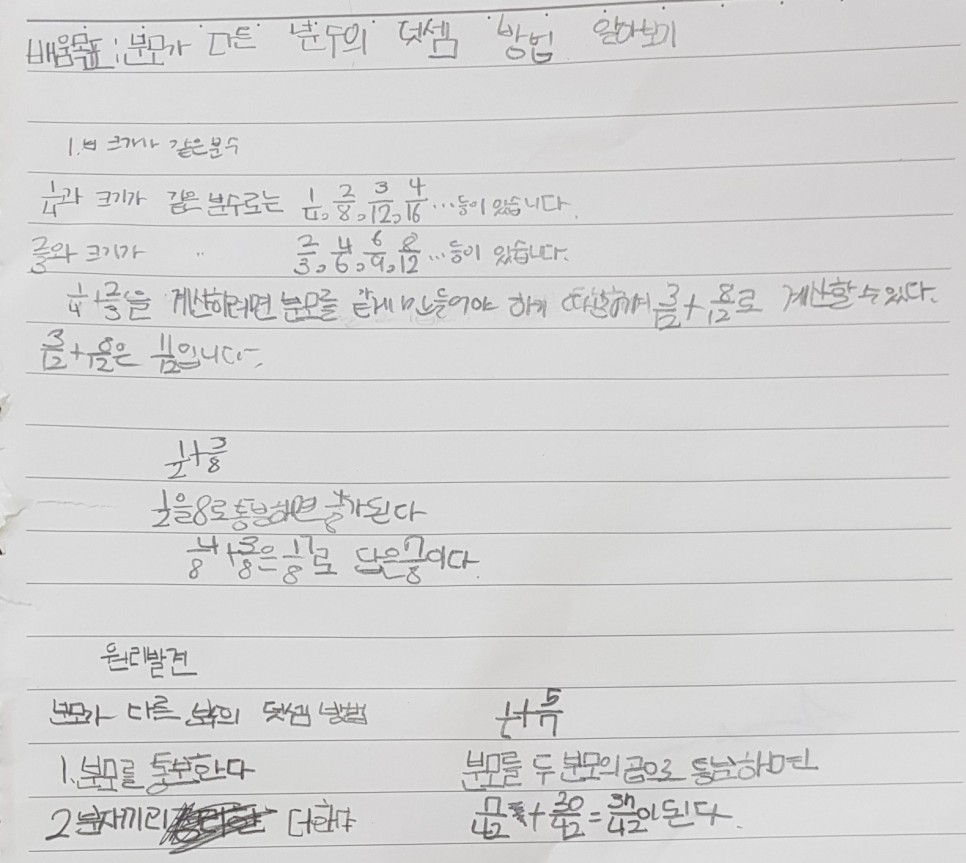 배움목표 : 분모가 다른 분수의 덧셈 방법 알아보기
1. 크기가 같은분수
1/4과 크기가 같은 분수로는 1/4, 2/8, 3/12, 4/16 ...등이 있습니다.
2/3와 크기가 〃 2/3, 4/6, 6/9, 8/12 ...등이 있습니다.
1/4+2/3을 계산하려면 분모를 같게 만들어야 하기 3/12+8/12로 계산할 수 있다.
3/12+8/12은 11/12입니다.
1/2+3/8
1/2을 8로 통분하면 4/8가 된다
4/8+3/8은 7/8로 답은 7/8이다.
원리발견
분모가 다른 분수의 덧셈 방법 1/6+5/7
1. 분모를 통분한다 분모를 두 분모의 곱으로 통분하면
2 분자끼리 더한다 7/42+30/42=37/42이 된다.